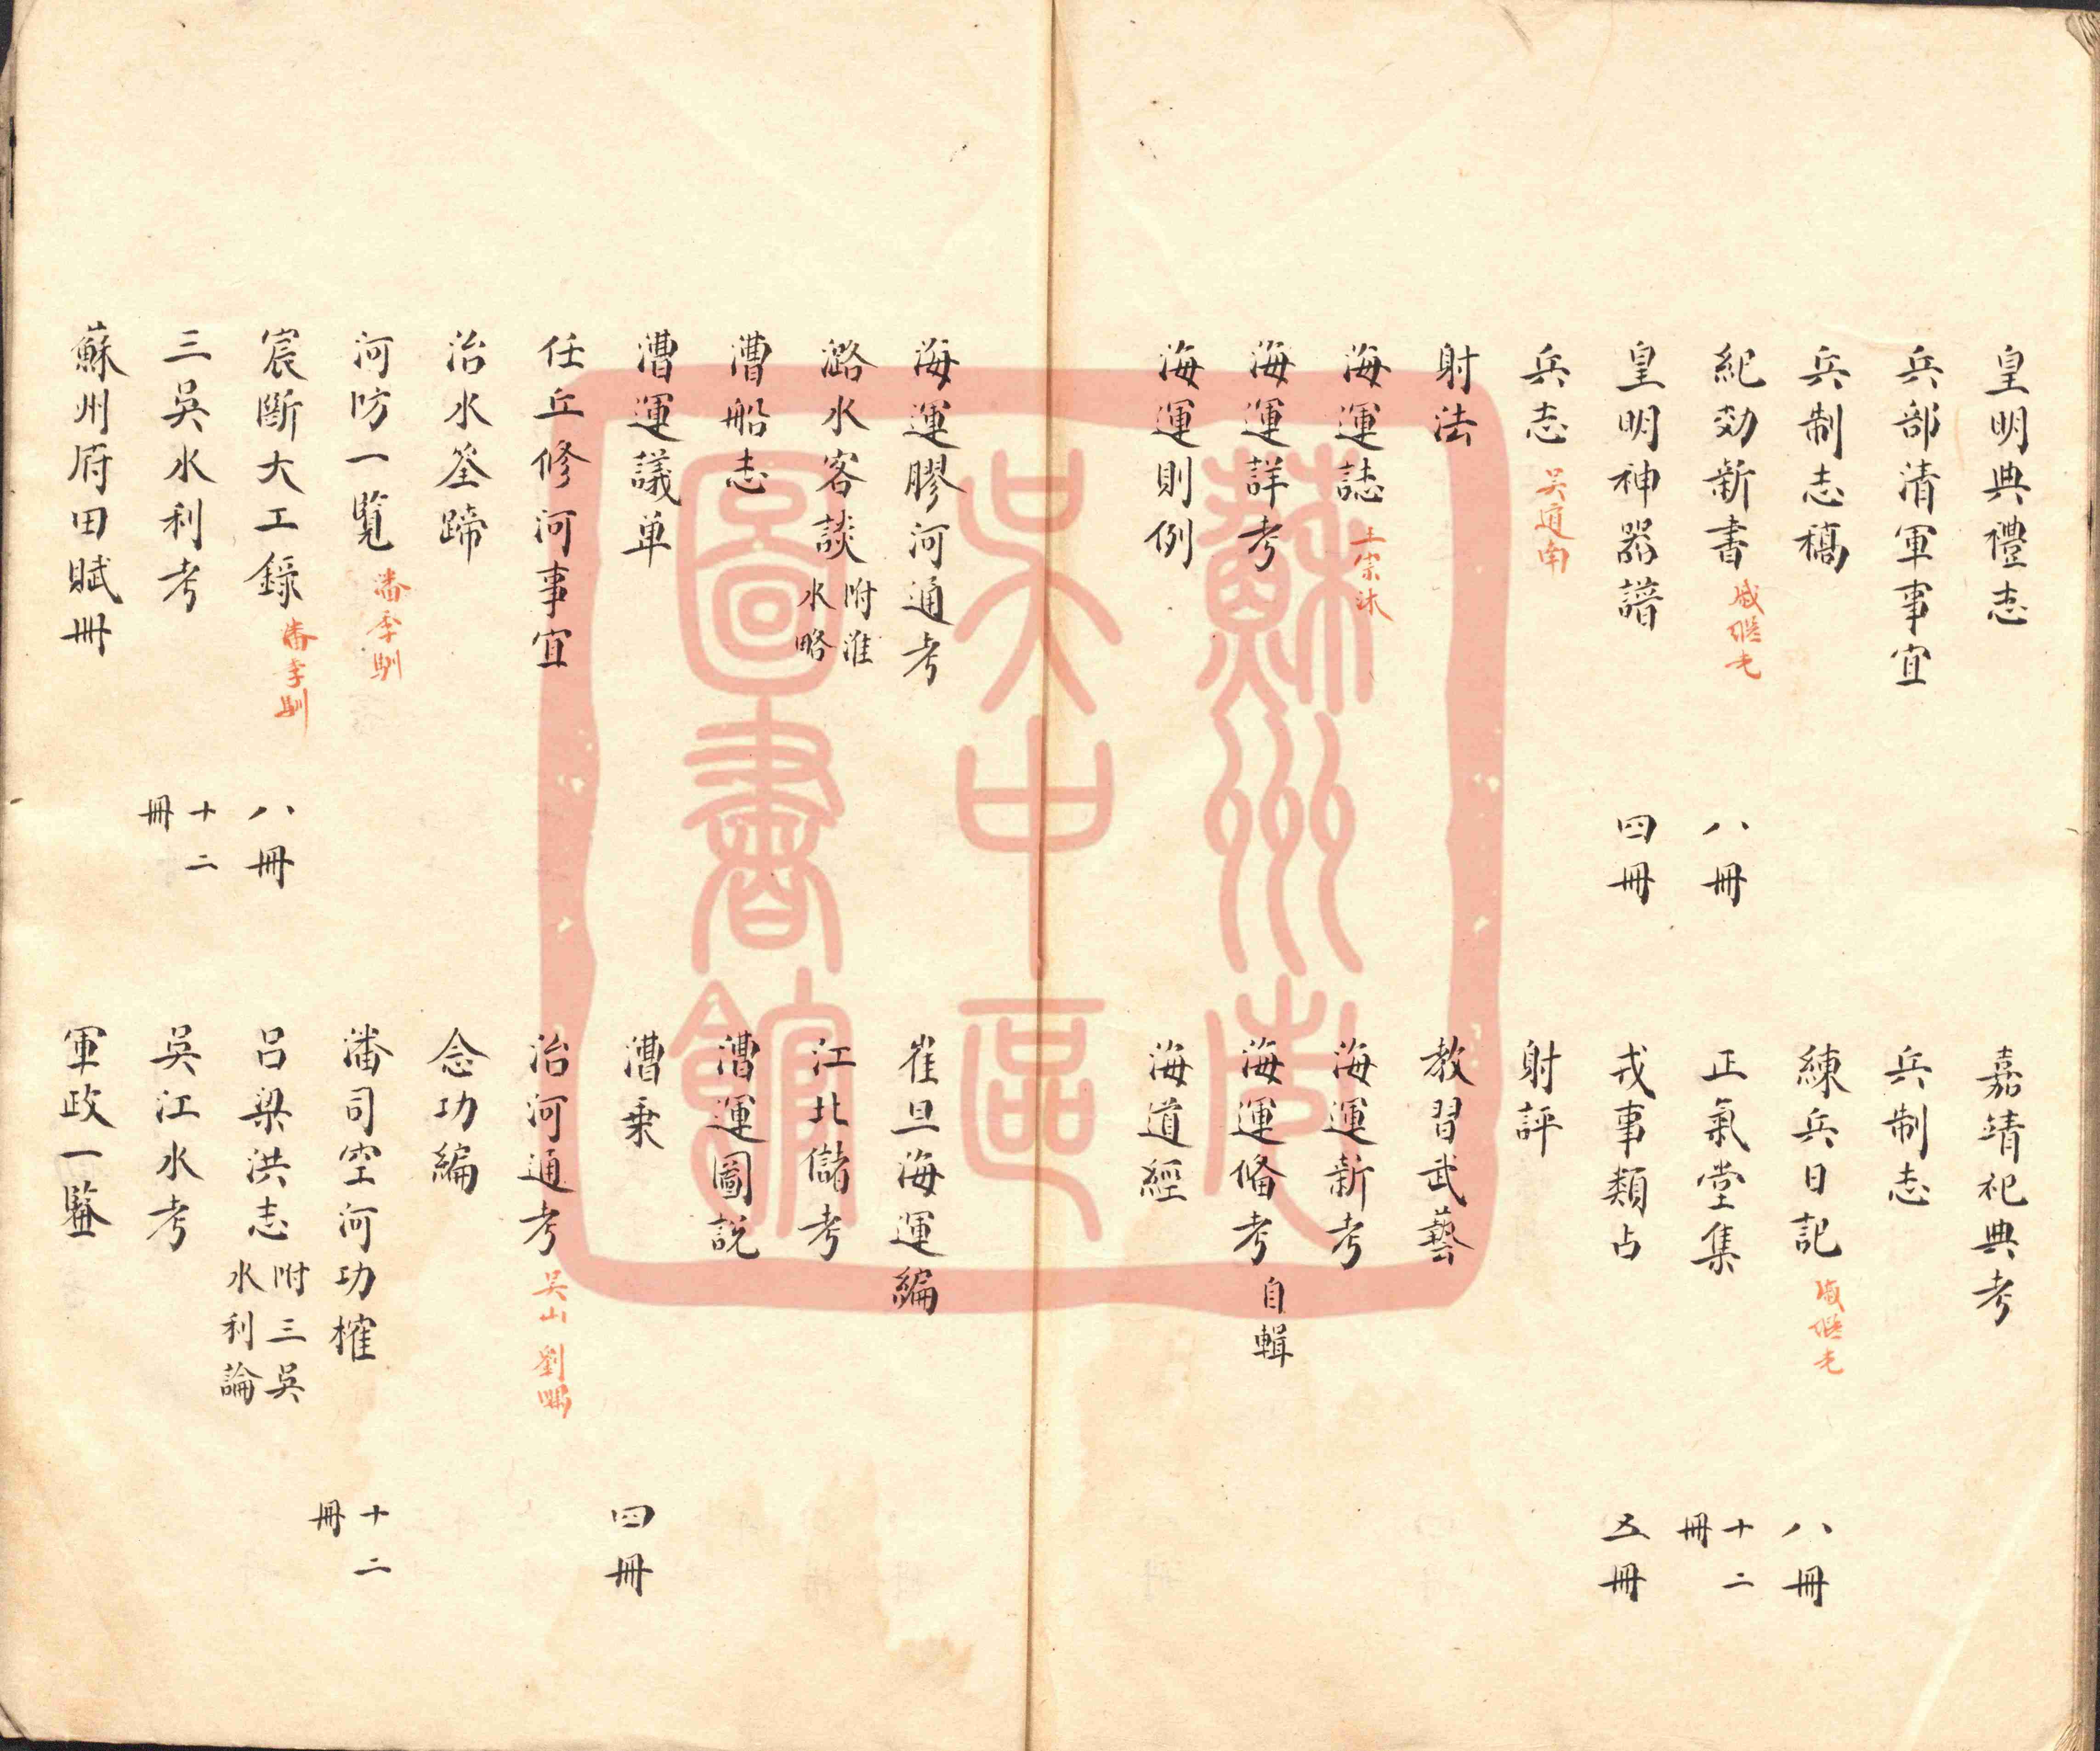 皇明典禮志
嘉靖祀典考
兵部清軍事宜
兵制志
兵制志稿
練兵日記 戚繼光 八冊
紀効新書 戚繼光 八冊
正氣堂集 十二冊
皇明神器譜 四冊
戎事類占 五冊
兵志 吳道南
射評
射法
教習武藝
海運誌 王宗沐
海運新考
海運詳考
海運俻考 自輯
海運則例
海道經
海運膠河通考
崔旦海運編
潞水客談 附淮水略
江北儲考
漕船志
漕運圖説
漕運議单
漕乗 四冊
任丘修河事宜
治河通考 吴山 劉隅
治水筌蹄
念功編
河防一覧 潘季馴
潘司空河功榷 十二冊
宸斷大工錄 潘季馴 八冊
吕梁洪志 附三吳水利論
三吳水利考 十二冊
吳江水考
蘇州府田賦冊
軍政一覽
蘇州市
吴中區
圖書館